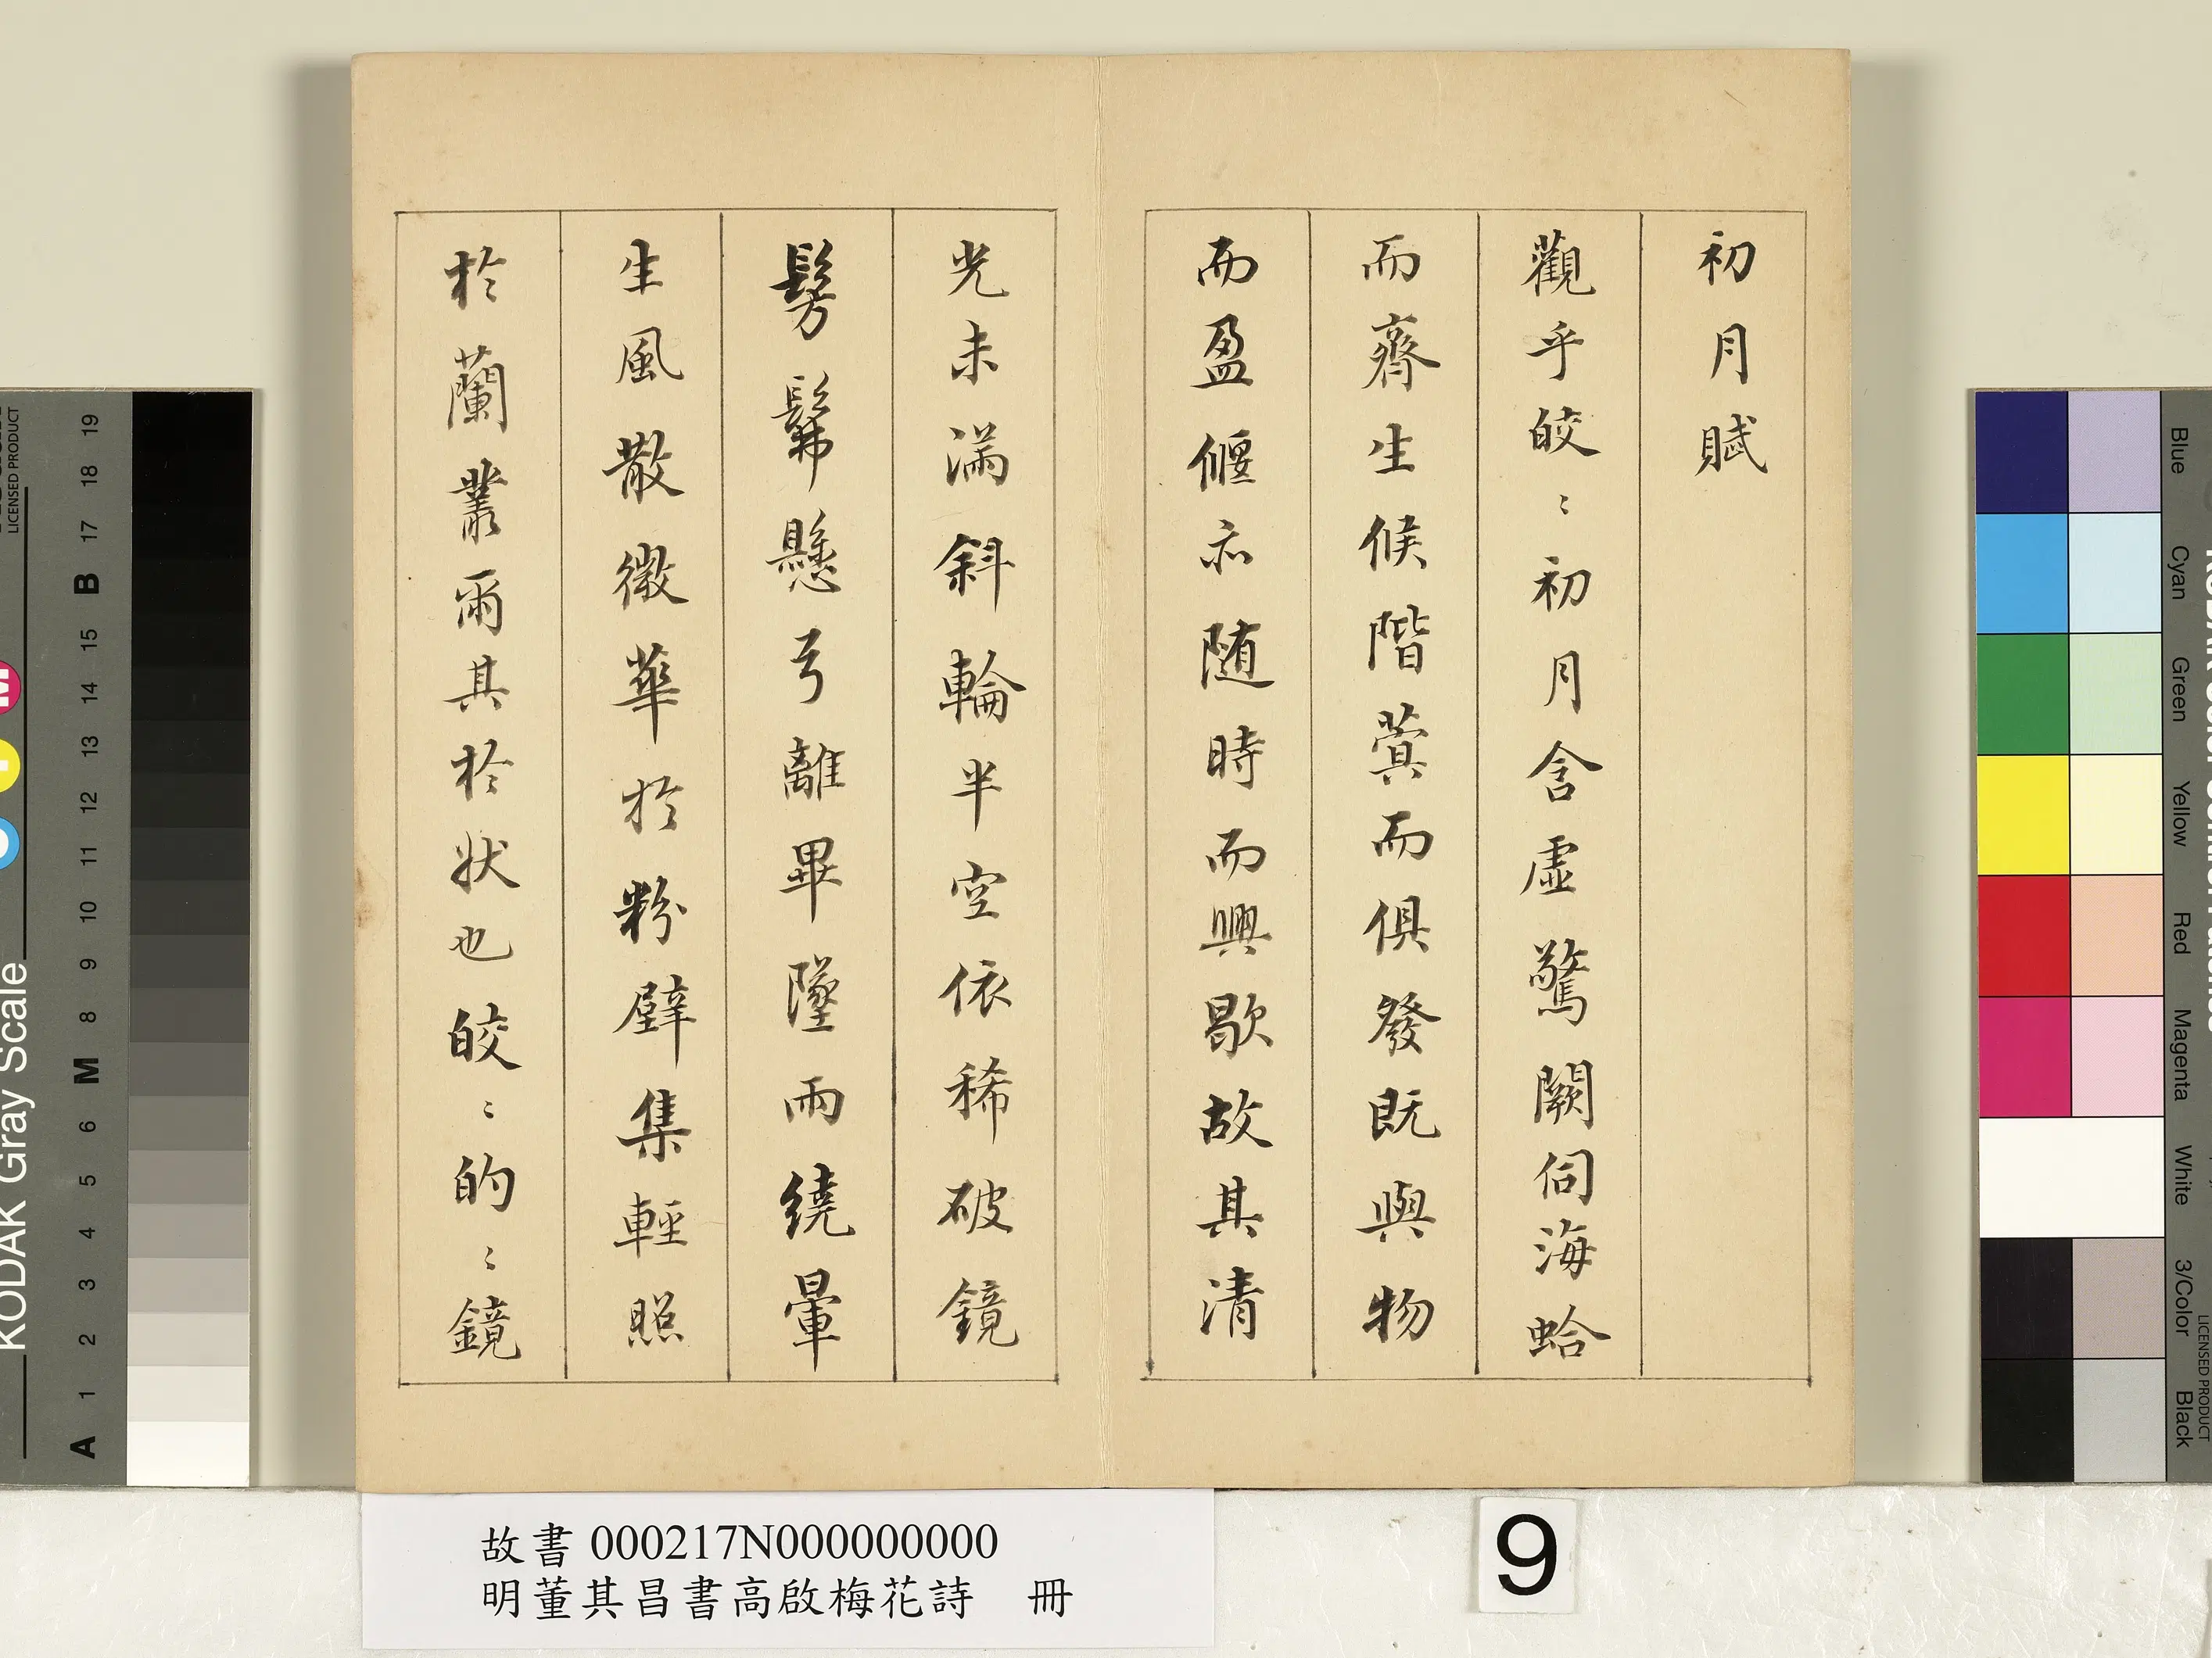 初月賦
觀乎皎〻初月含虛驚闕伺海蛤
而齊生候階蓂而俱發既與物
而盈偃亦随時而興歇故其清
光未滿斜輪半空依稀破鏡
髣髴懸弓離畢墜雨繞暈
生風散微華於粉壁集輕照
於蘭叢爾其於狀也皎〻的〻鏡
故書 000217N000000000
明董其昌書高啟梅花詩 冊
9
KODAK Gray Scale
LICENSED PRODUCT
A 1 2 3 4 5 6 M 8 9 10 11 12 13 14 15 B 17 18 19
Blue
Cyan
Green
Yellow
Red
Magenta
White
3/Color
Black
LICENSED PRODUCT